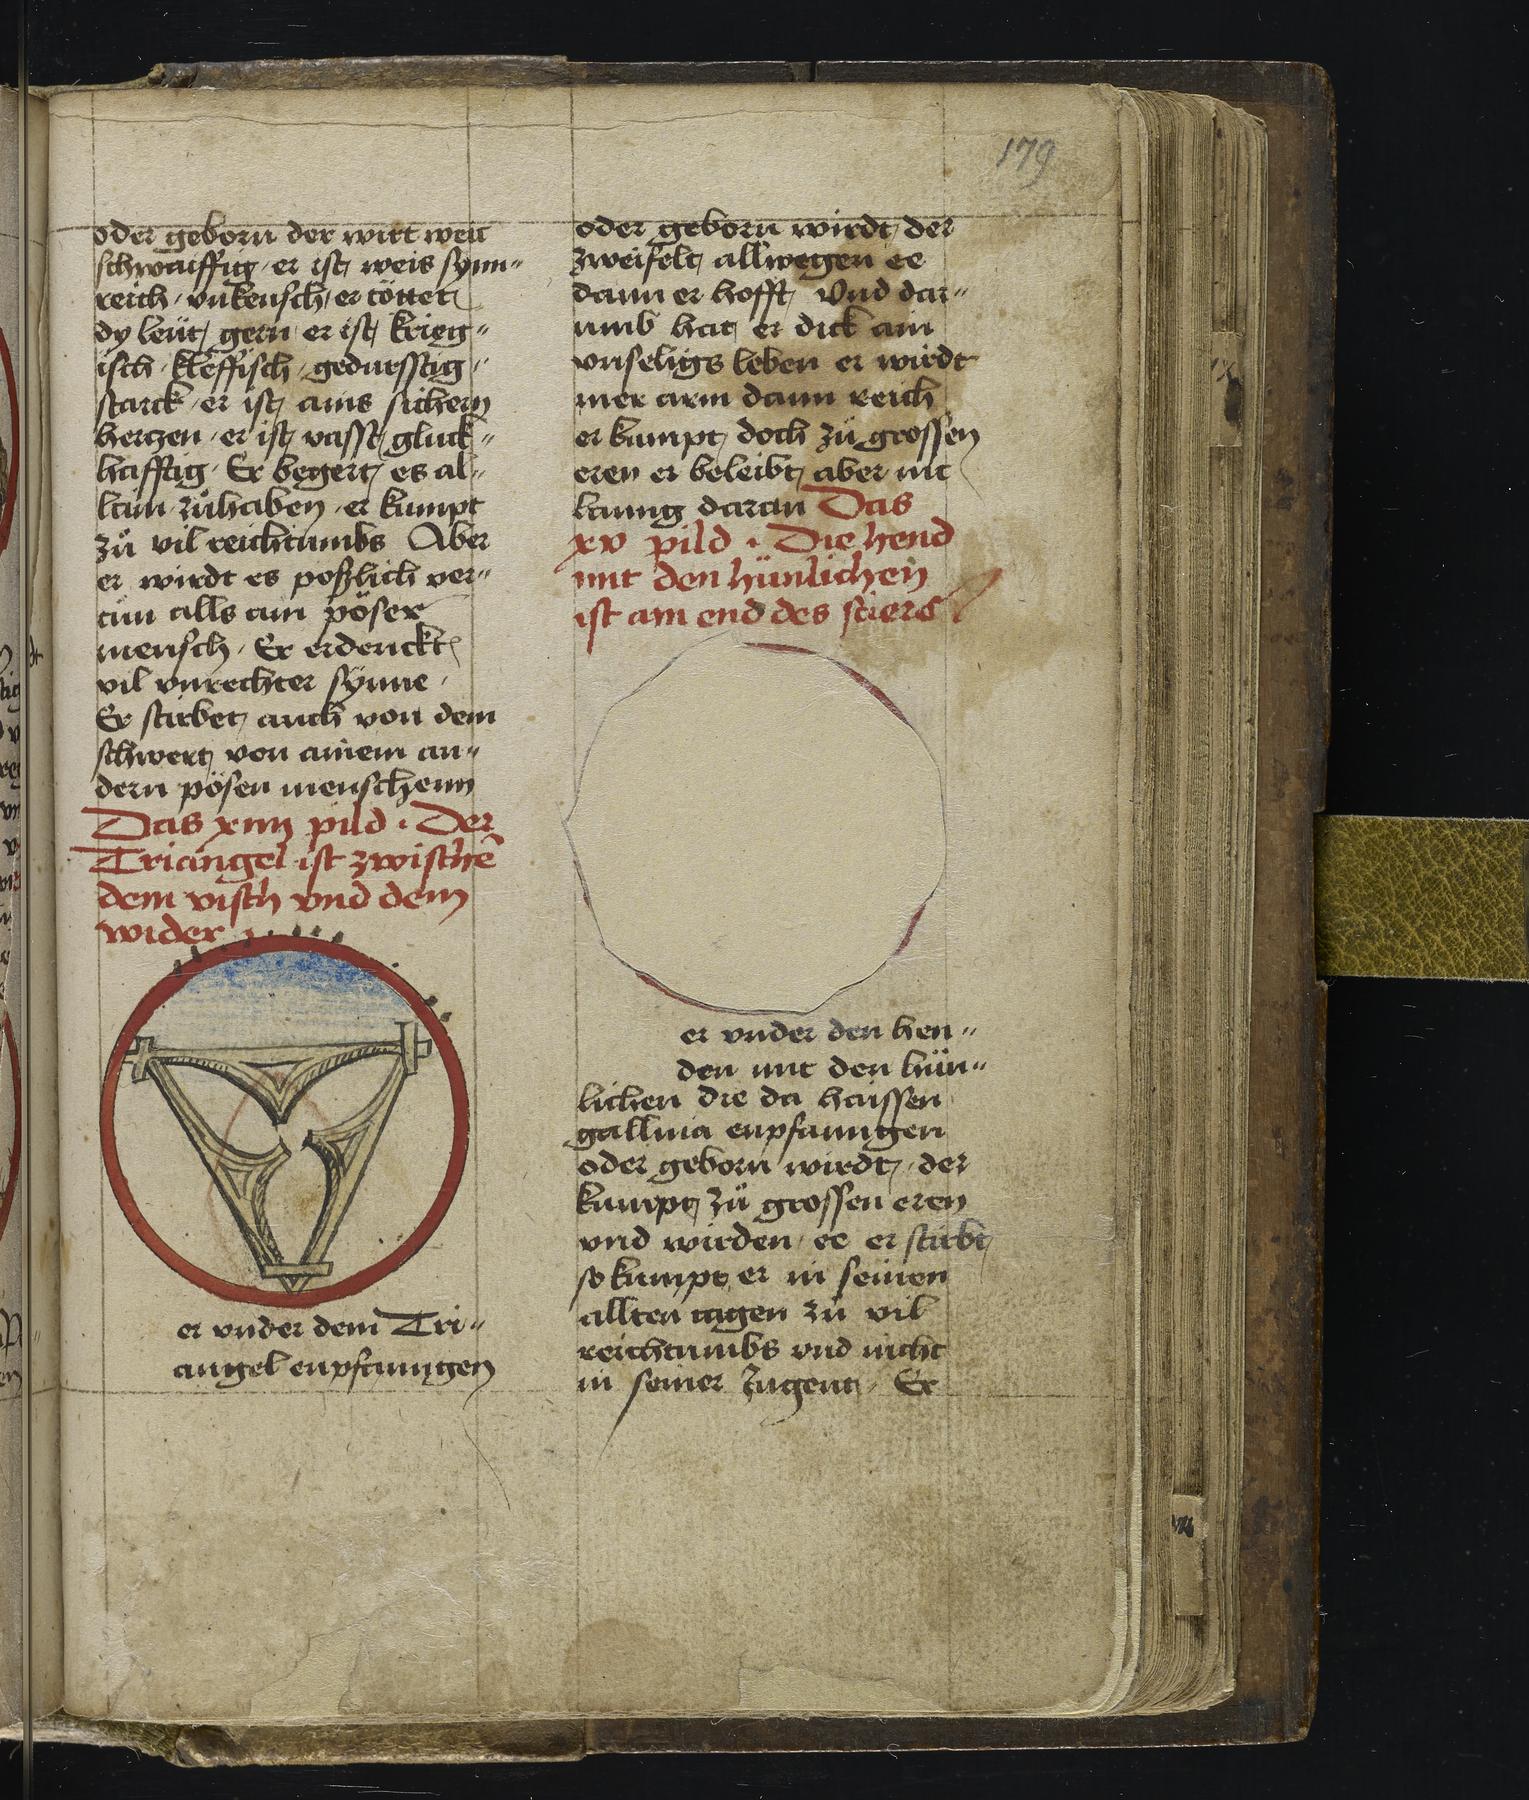 179
oder geborn der wirt weit
schwaiffig · er ist weis synn〃
reich · vnkeusch · er töttet
dy leüt gern er ist krieg〃
isch · kleffisch · gedursstig ·
starck · er ist ains sichern
hertzen · er ist vasst gluck〃
hafftig · Er begert es al〃
lain zuͦhaben · er kumpt
zuͦ vil reichtumbs Aber
er wirdt es poßlich ver〃
tun alls ain pöser
mensch · Er erdenckt
vil vnrechter synne ·
Er stirbet auch von dem
schwert von ainem an〃
dern pösen menschenn
Das xiiij pild · Der
Triangel ist zwischē
dem visch vnd dem
wider
er vnder dem Tri〃
angel enpfanngen
oder geborn wirdt der
zweifelt allwegen ee
dann er hofft Vnd dar〃
umb hat er dick ain
vnseligs leben er wirdt
mer arm dann reich
er kumpt doch zuͦ grossen
eren er beleibt aber nit
lanng daran Das
xv pild · Die hend
mit den hünlichen
ist am end des stiers
er vnder den hen〃
den mit den hün〃
lichen die da haissen
gallina enpfanngen
oder geborn wirdt · der
kumpt zuͦ grossen eren
vnd wirden · ee er stirbt
so kumpt er in seinen
allten tagen zuͦ vil
reichtumbs vnd nicht
in seiner Jugent · Er